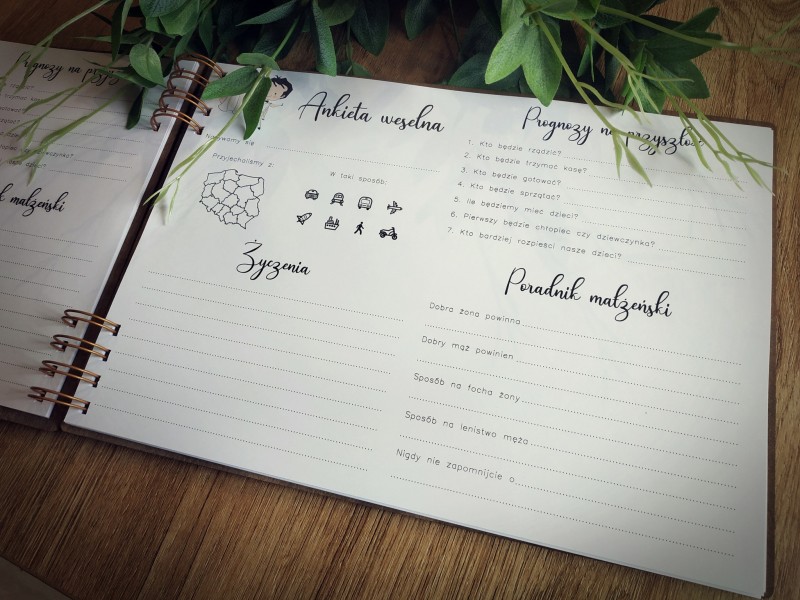 Prognozy na
małżeński
Ankieta weselna
Nazywamy się
Przyjechaliśmy z:
W taki sposób:
Życzenia
Prognozy na przyszłość
1. Kto będzie rządzić?
2. Kto będzie trzymać kasę?
3. Kto będzie gotować?
4. Kto będzie sprzątać?
5. Ile będziemy mieć dzieci?
6. Pierwszy będzie chłopiec czy dziewczynka?
7. Kto bardziej rozpieści nasze dzieci?
Poradnik małżeński
Dobra żona powinna
Dobry mąż powinien
Sposób na focha żony
Sposób na lenistwo męża
Nigdy nie zapomnijcie o